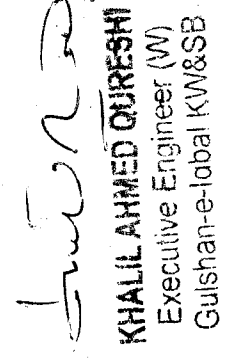 KHALIL AHMED QURESHI
Executive Engineer (W)
Gulshan-e-Iqbal KW&SB